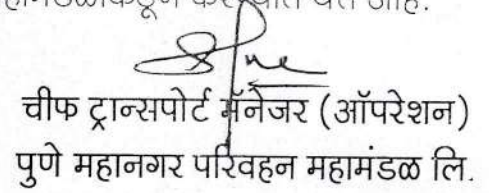 करण्यात येत आहे.
चीफ ट्रान्सपोर्ट मॅनेजर (ऑपरेशन)
पुणे महानगर परिवहन महामंडळ लि.